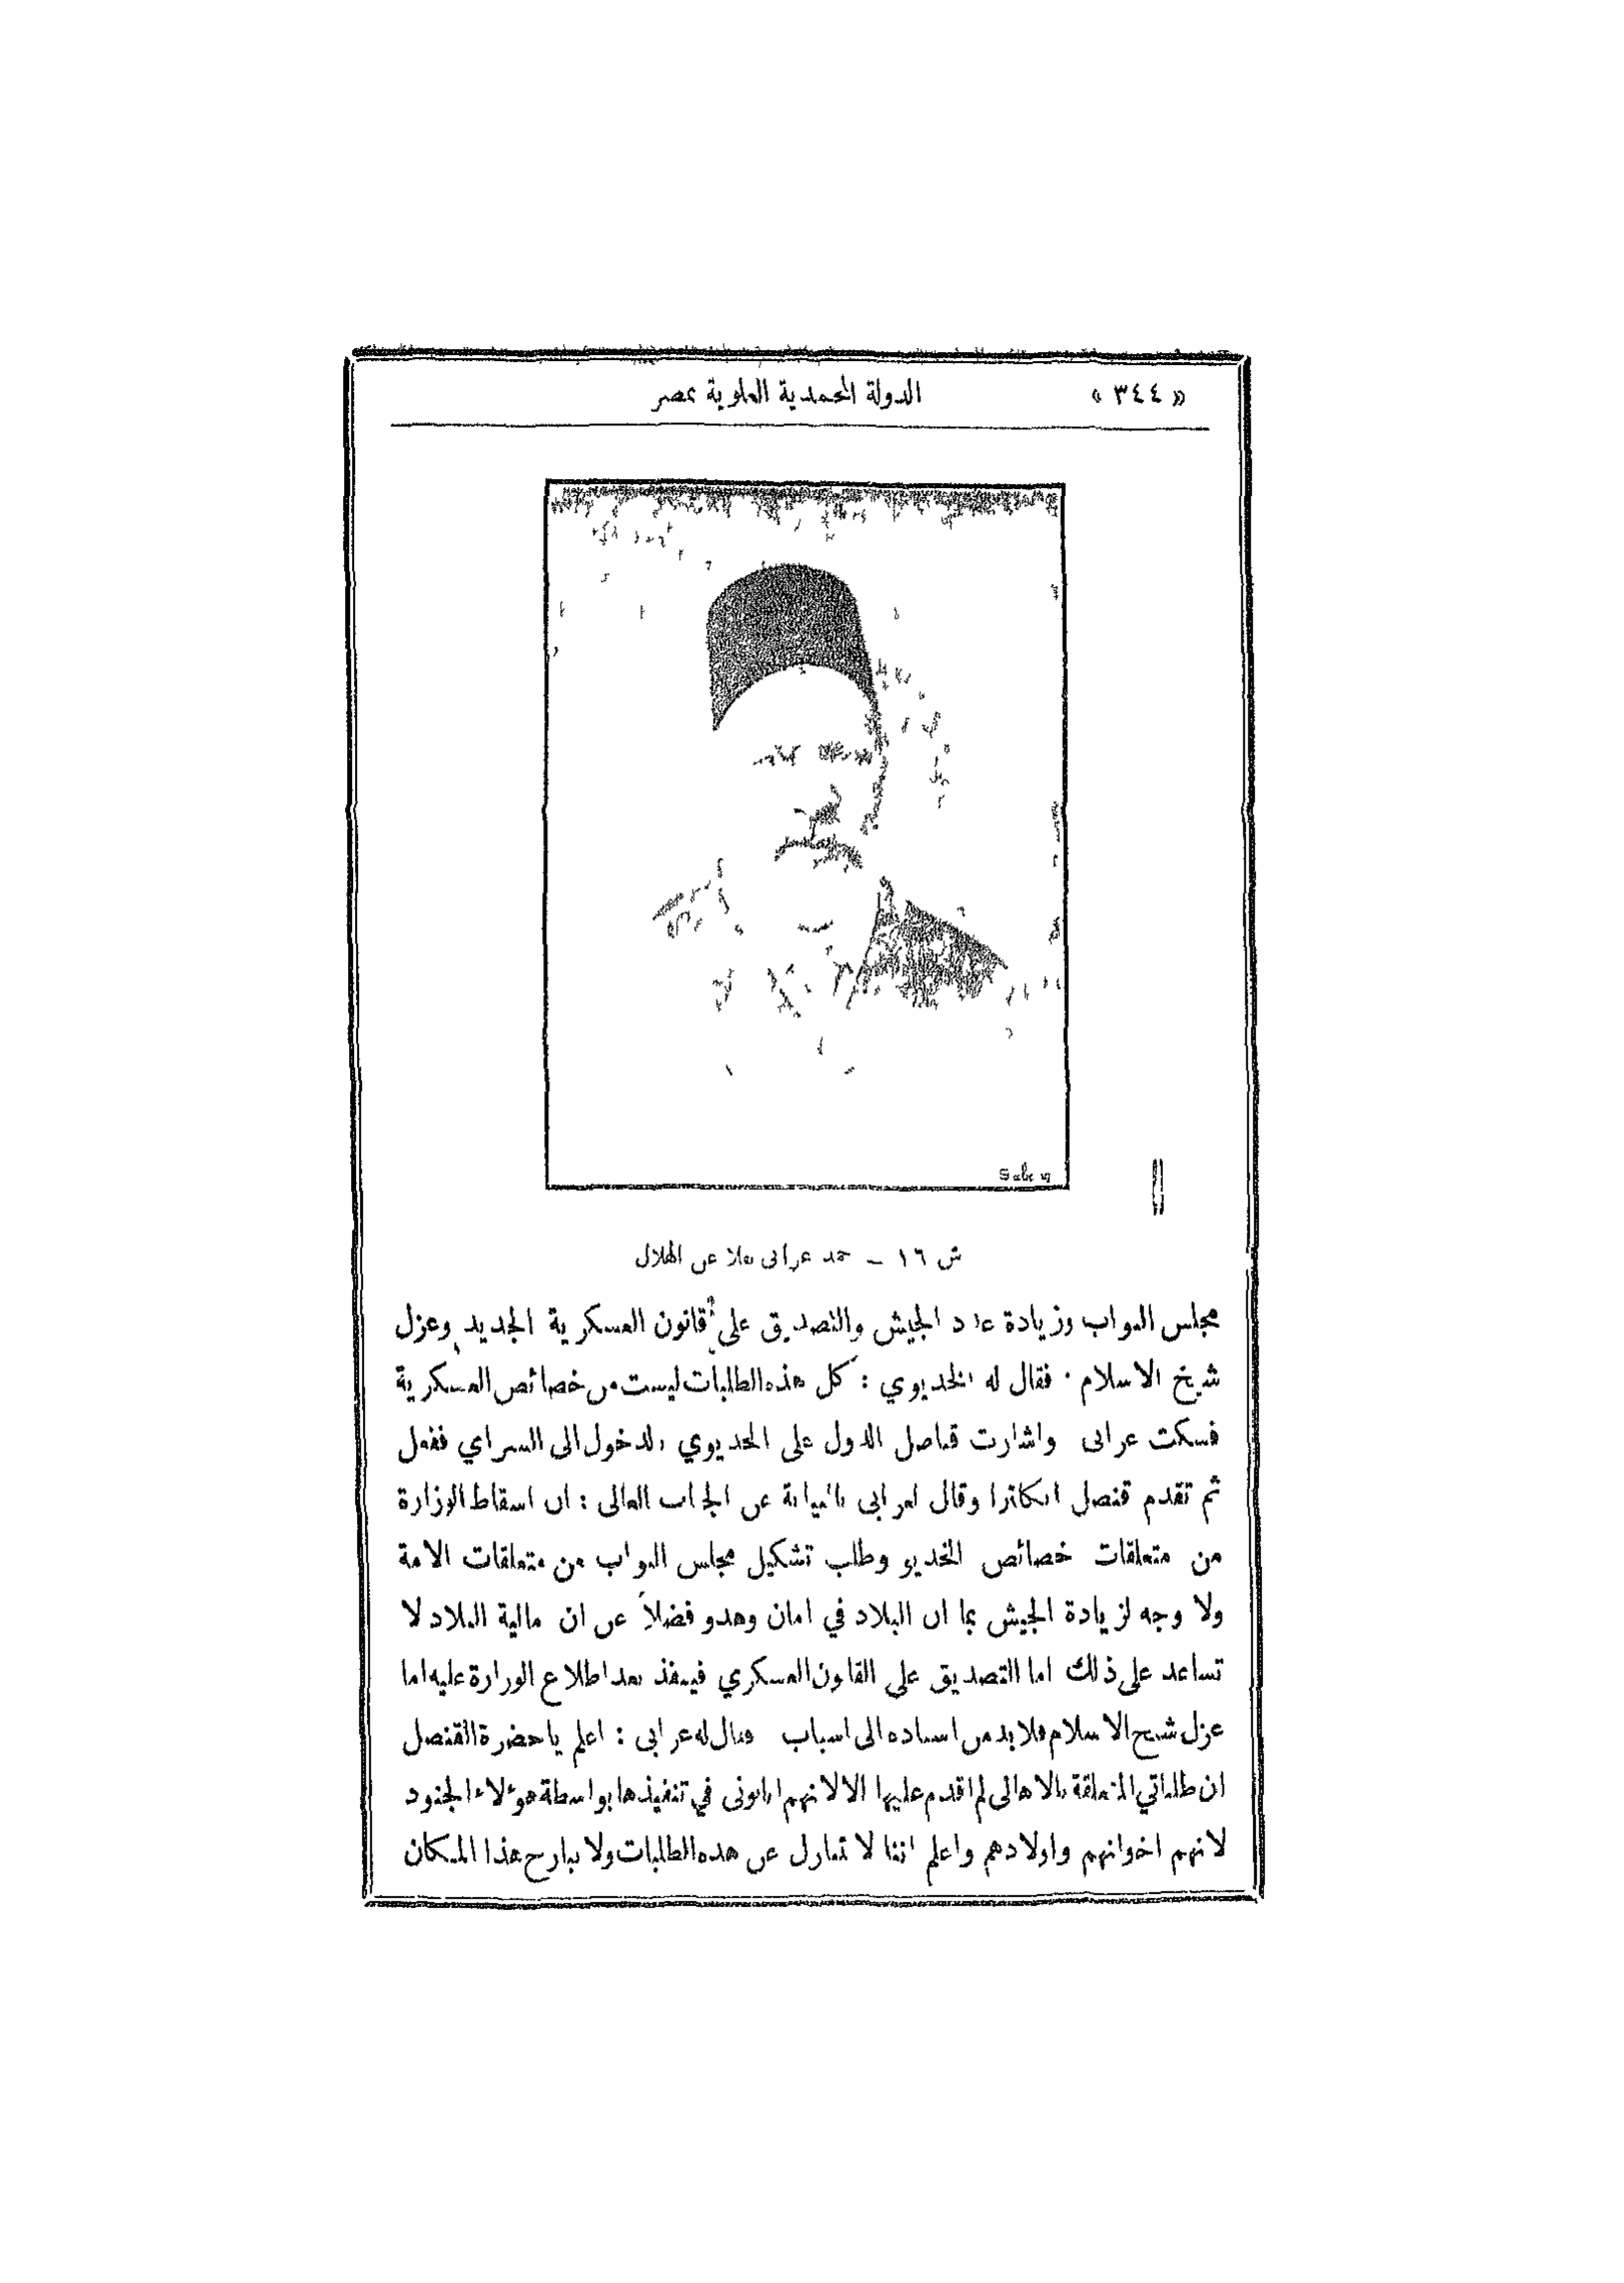 «٣٤٤» الدولة المحمدية العلوية بمصر
ش ١٦ – احمد عرابي نقلا عن الهلال
مجلس النواب وزيادة عدد الجيش والتصديق على قانون العسكرية الجديد وعزل
شيخ الاسلام · فقال له الخديوي : كل هذه الطلبات ليست من خصائص العسكرية
فسكت عرابي واشارت قناصل الدول على الخديوي بالدخول الى السراي ففعل
ثم تقدم قنصل انكلترا وقال لعرابي بالنيابة عن الجناب العالي : ان اسقاط الوزارة
من متعلقات خصائص الخديو وطلب تشكيل مجلس النواب من متعلقات الامة
ولا وجه لزيادة الجيش بما ان البلاد في امان وهدو فضلاً عن ان مالية البلاد لا
تساعد على ذلك اما التصديق على القانون العسكري فينفذ بعد اطلاع الوزارة عليه اما
عزل شيخ الاسلام فلا بد من اسناده الى اسباب فقال له عرابي : اعلم يا حضرة القنصل
ان طلباتي المتعلقة بالاهالي لم اقدم عليها الا لانهم انابوني في تنفيذها بواسطة هؤلاء الجنود
لانهم اخوانهم واولادهم واعلم اننا لا نتنازل عن هذه الطلبات ولا نبارح هذا المكان